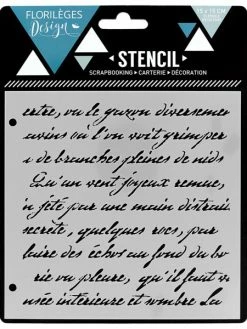 FLORILÈGES
Design
STENCIL
SCRAPBOOKING • CARTERIE • DÉCORATION
15 x 15 CM
ertre, ou le gazon diversemen
avins où l'on voit grimper
de branches pleines de nids
Qu'un vent joyeux remue,
n jeté par une main distrait
secrète, quelques rocs, par
faire des échos au fond du bo
rie ou pleure, qu'il faut
usée intérieure et sombre La